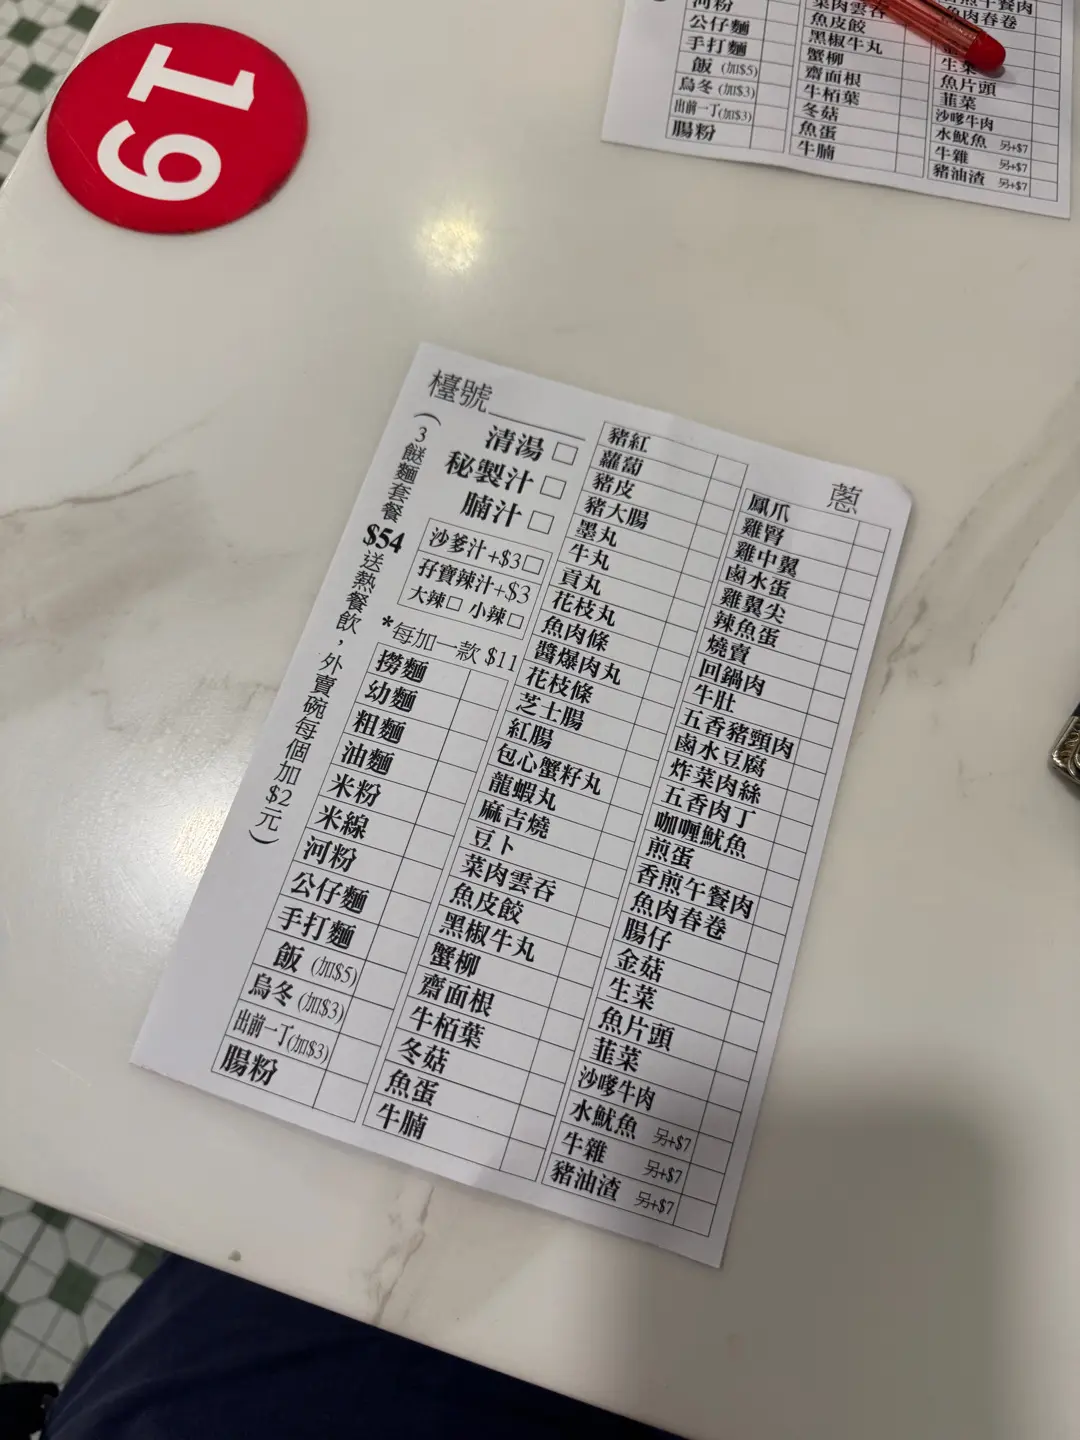 19
河粉
公仔麵
手打麵
飯 (加$5)
烏冬 (加$3)
出前一丁(加$3)
腸粉
菜肉雲吞
魚皮餃
黑椒牛丸
蟹柳
齋面根
牛栢葉
冬菇
魚蛋
牛腩
香煎午餐肉
魚肉春卷
生菜
魚片頭
韮菜
沙嗲牛肉
水魷魚 另+$7
牛雜 另+$7
豬油渣 另+$7
檯號
(3餸麵套餐 $54 送熱餐飲，外賣碗每個加$2元)
清湯 □
秘製汁 □
腩汁 □
沙爹汁+$3□
孖寶辣汁+$3
大辣□ 小辣□
*每加一款 $11
撈麵
幼麵
粗麵
油麵
米粉
米線
河粉
公仔麵
手打麵
飯 (加$5)
烏冬 (加$3)
出前一丁(加$3)
腸粉
豬紅
蘿蔔
豬皮
豬大腸
墨丸
牛丸
貢丸
花枝丸
魚肉條
醬爆肉丸
花枝條
芝士腸
紅腸
包心蟹籽丸
龍蝦丸
麻吉燒
豆卜
菜肉雲吞
魚皮餃
黑椒牛丸
蟹柳
齋面根
牛栢葉
冬菇
魚蛋
牛腩
蔥
鳳爪
雞腎
雞中翼
鹵水蛋
雞翼尖
辣魚蛋
燒賣
回鍋肉
牛肚
五香豬頸肉
鹵水豆腐
炸菜肉絲
五香肉丁
咖喱魷魚
煎蛋
香煎午餐肉
魚肉春卷
腸仔
金菇
生菜
魚片頭
韮菜
沙嗲牛肉
水魷魚 另+$7
牛雜 另+$7
豬油渣 另+$7